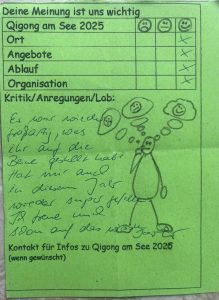 Deine Meinung ist uns wichtig
Qigong am See 2025
Ort
Angebote
Ablauf
Organisation
Kritik/Anregungen/Lob:
Es war wieder
großartig, was
ihr auf die
Beine gestellt habt
Hat mir auch
in diesem Jahr
wieder super gefallen
Ich freue mich
schon auf das
Kontakt für Infos zu Qigong am See 2025
(wenn gewünscht)